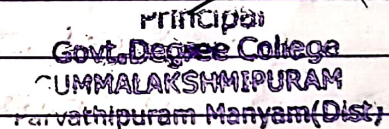 Principal
Govt.Degree College
UMMALAKSHMIPURAM
Parvathipuram Manyam(Dist)